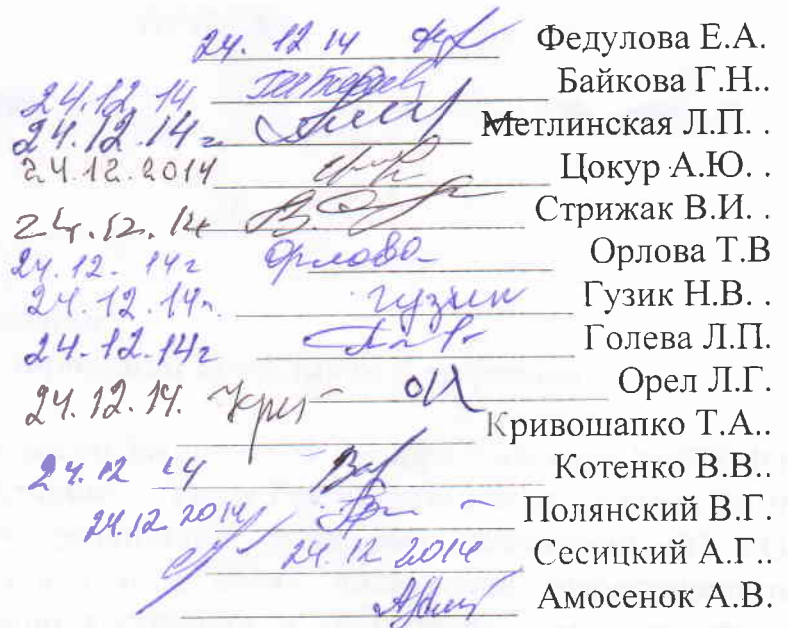 24. 12 14 Федулова Е.А.
24.12.14 Байкова Г.Н..
24.12.14г Метлинская Л.П. .
24.12.2014 Цокур А.Ю. .
24.12.14 Стрижак В.И. .
24.12. 14г Орлова Орлова Т.В
24.12.14г. гузик Гузик Н.В. .
24.12.14г Голева Л.П.
24.12.14. Орел Л.Г.
Кривошапко Т.А..
24.12 14 Котенко В.В..
24.12 2014 Полянский В.Г.
24.12 2014 Сесицкий А.Г..
Амосенок А.В.